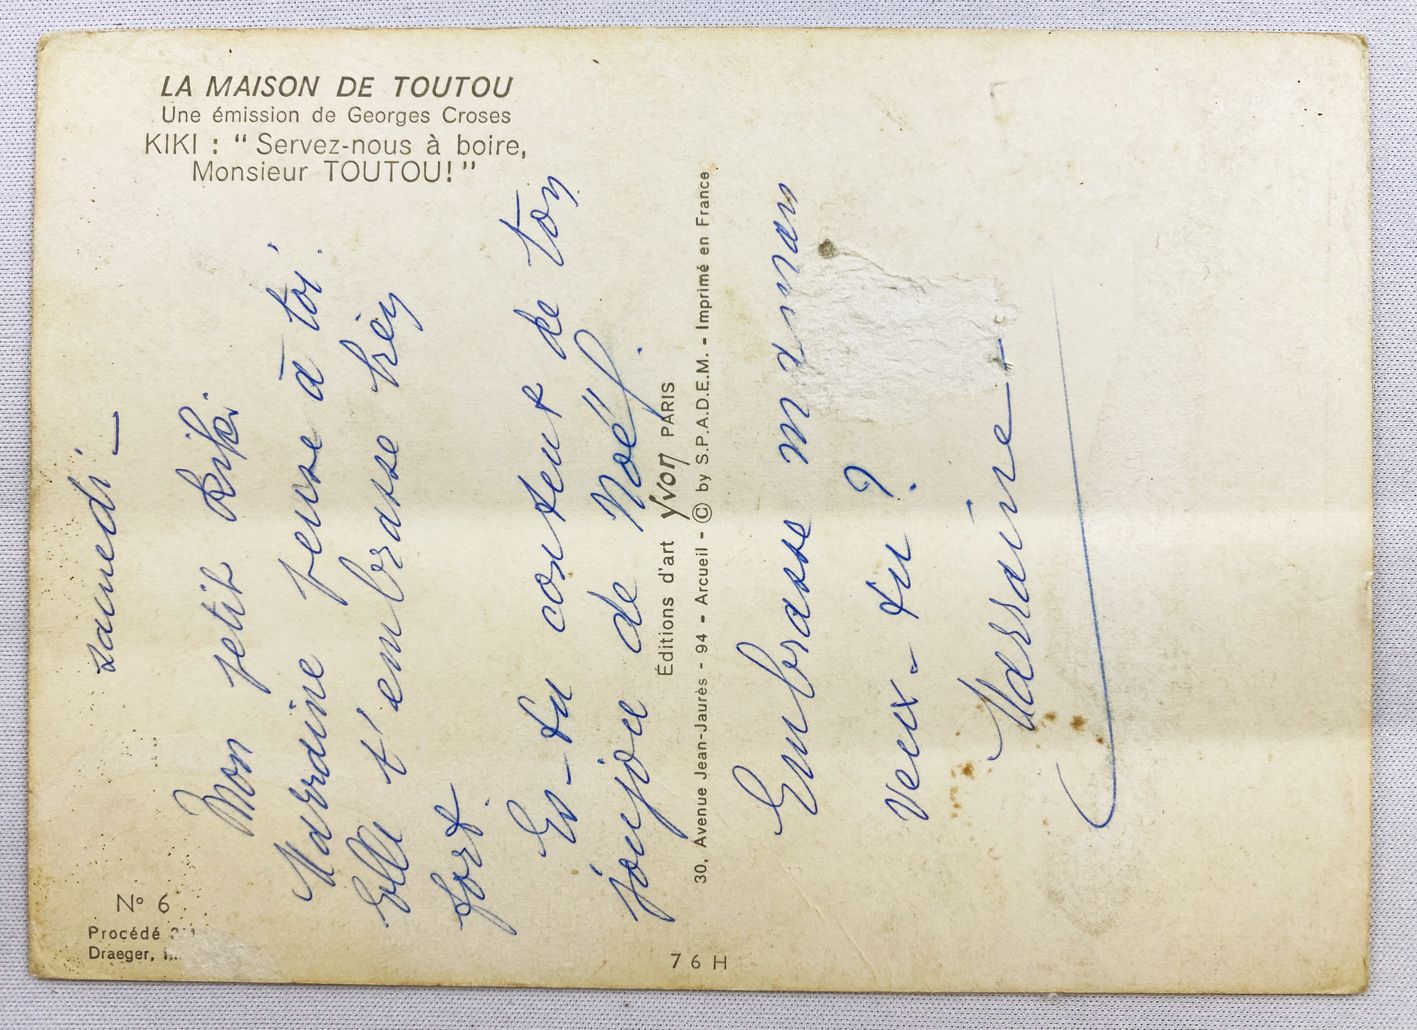 LA MAISON DE TOUTOU
Une émission de Georges Croses
KIKI : “ Servez-nous à boire,
Monsieur TOUTOU! ”
samedi –
Mon petit Kiki
Marraine pense à toi.
Elle t'embrasse très
fort.
Es-tu content de ton
joujou de Noël.
Éditions d'art Yvon PARIS
30, Avenue Jean-Jaurès - 94 - Arcueil - © by S.P.A.D.E.M. - Imprimé en France
Embrasse maman
veux-tu ?
Marraine –
N° 6
Procédé
Draeger,
76 H